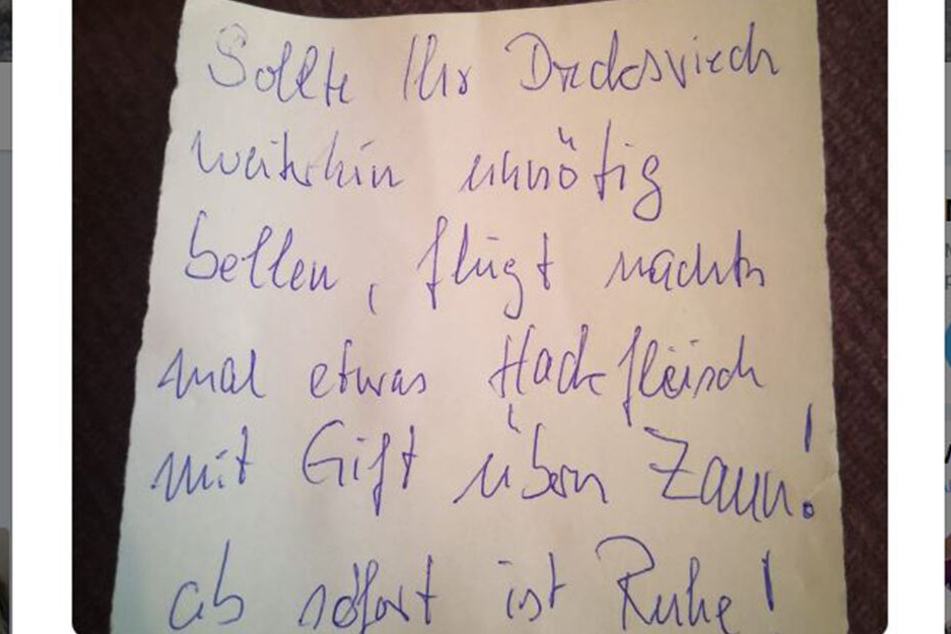 Sollte Ihr Drecksviech
weiterhin unnötig
bellen, fliegt nachts
mal etwas Hackfleisch
mit Gift übern Zaun!
ab sofort ist Ruhe!